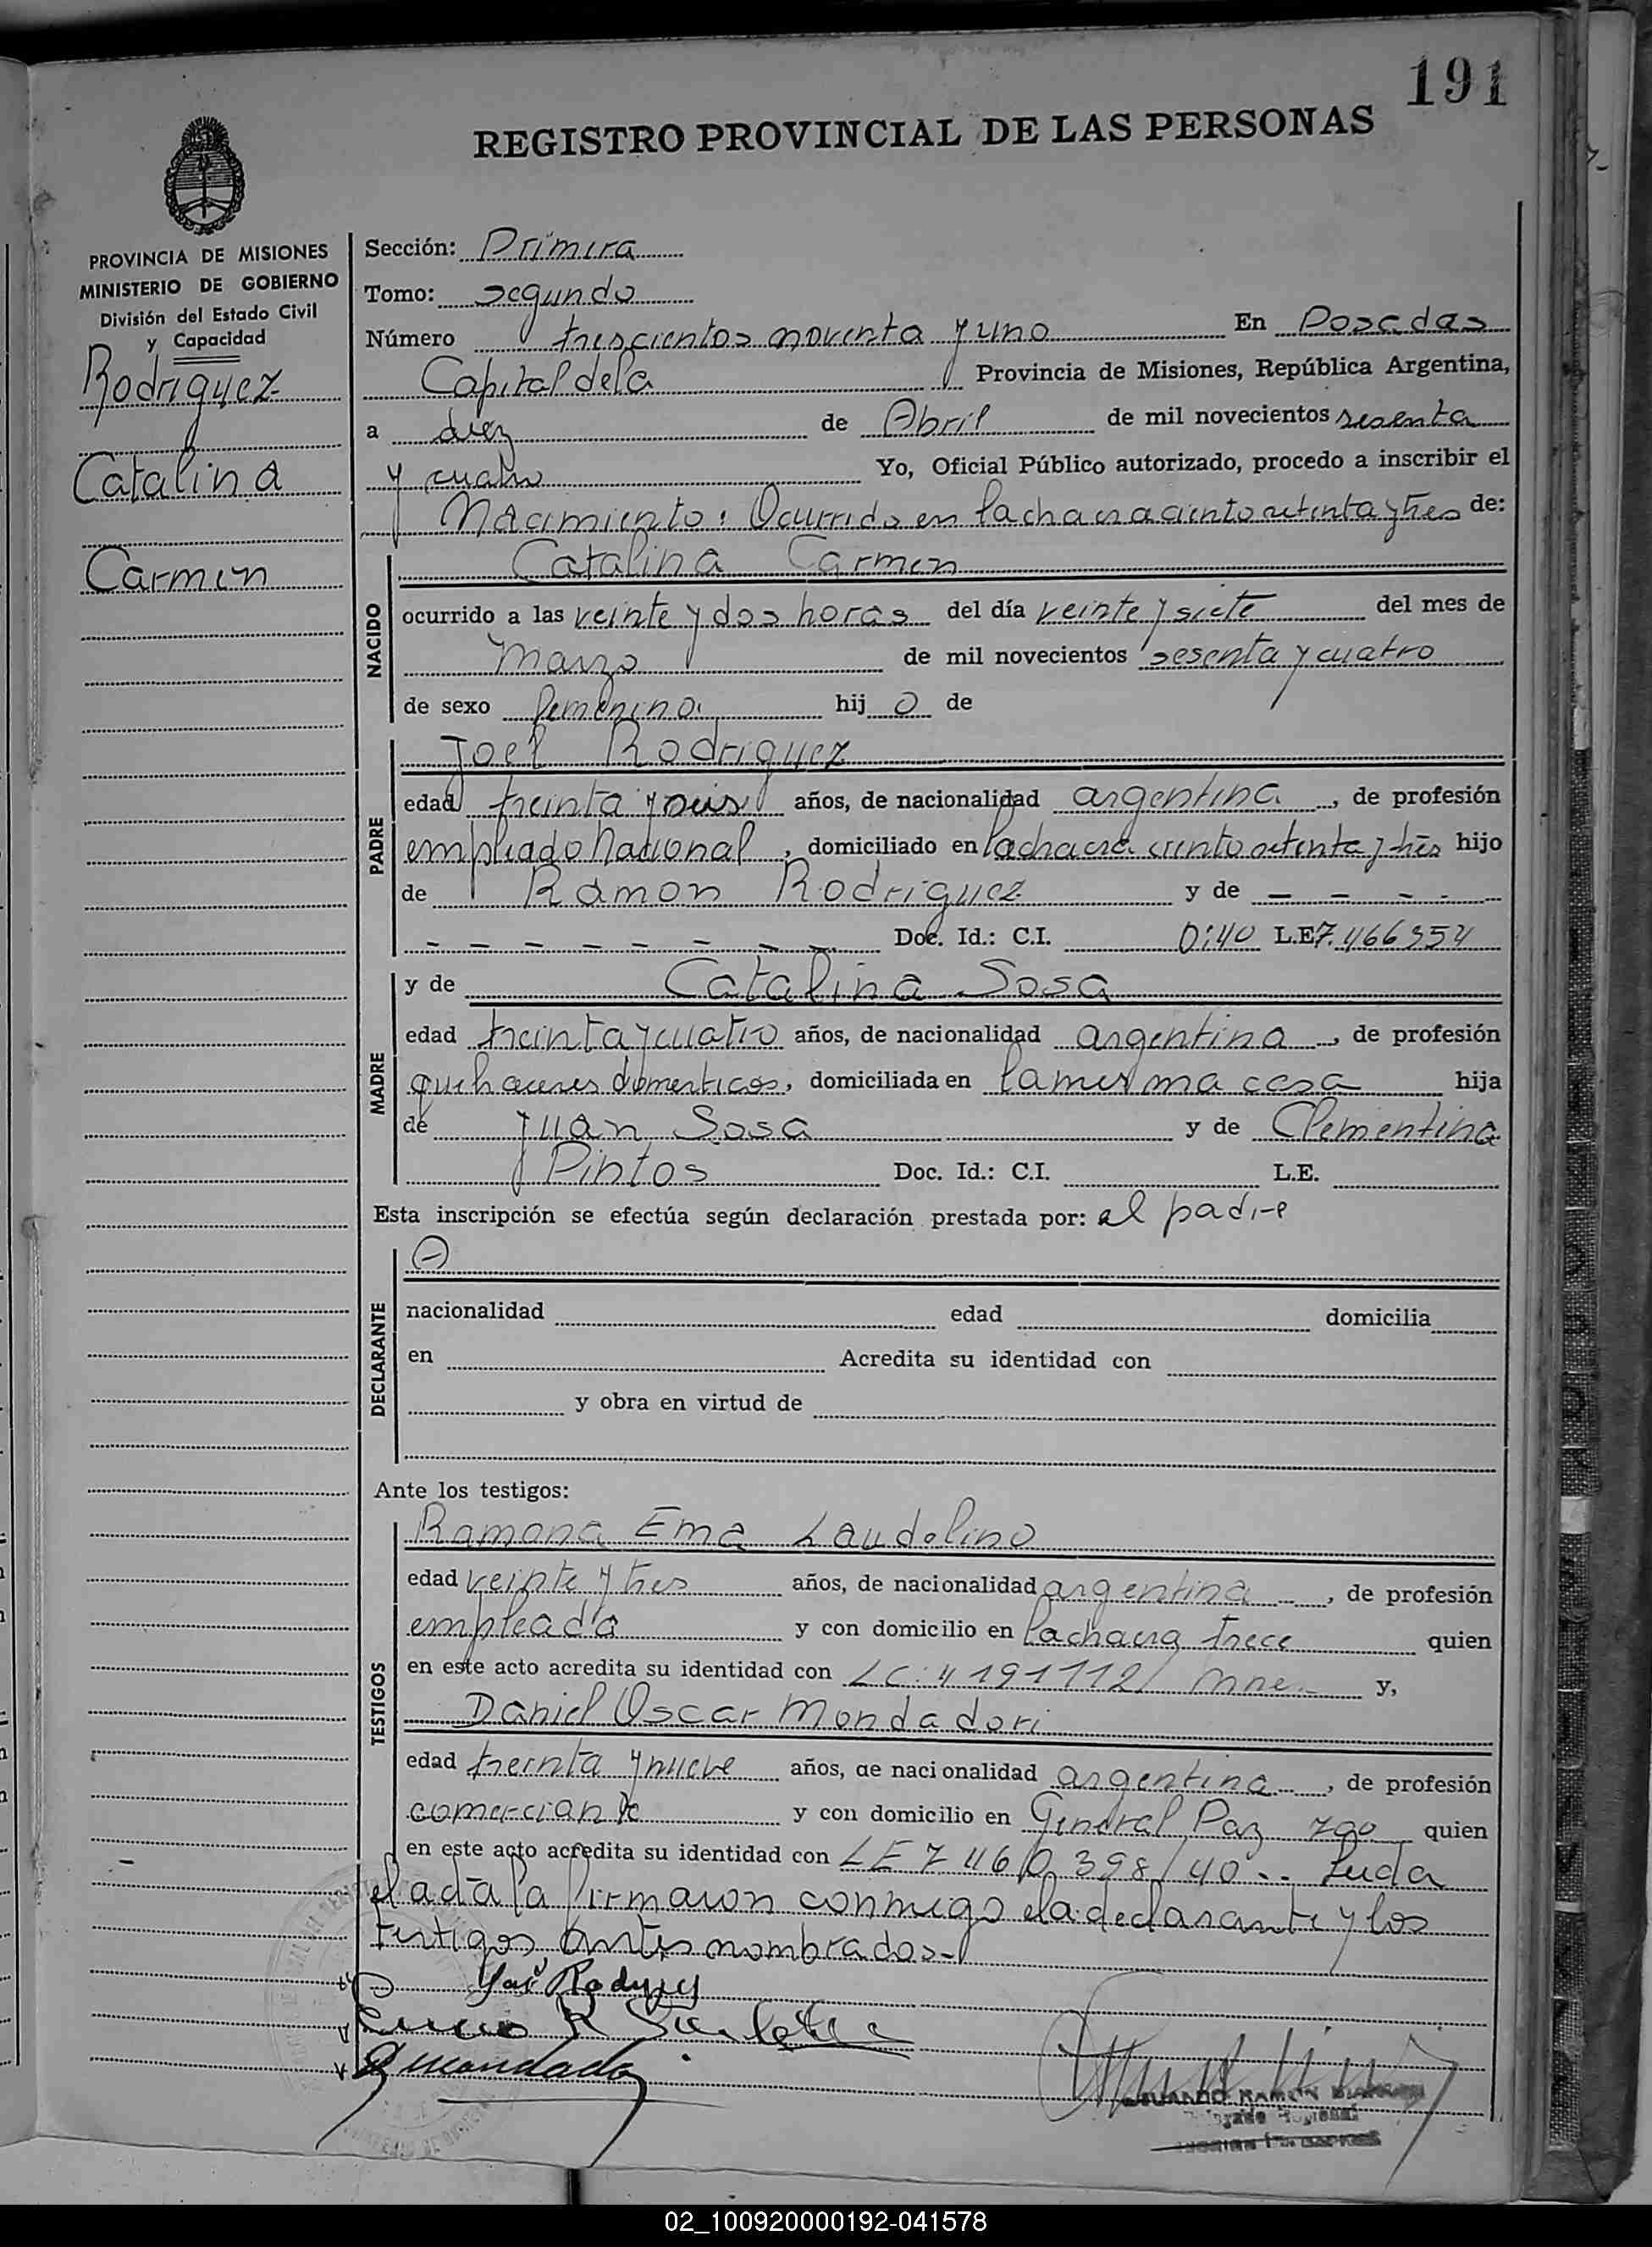 191
REGISTRO PROVINCIAL DE LAS PERSONAS
PROVINCIA DE MISIONES
MINISTERIO DE GOBIERNO
División del Estado Civil
y Capacidad
Rodriguez
Catalina
Carmen
Sección: Primera
Tomo: segundo
Número trescientos noventa y uno En Posadas
Capital de la Provincia de Misiones, República Argentina,
a diez de Abril de mil novecientos sesenta
y cuatro Yo, Oficial Público autorizado, procedo a inscribir el
Nacimiento: Ocurrido en la chacra ciento setenta y tres de:
NACIDO
Catalina Carmen
ocurrido a las veinte y dos horas del día veinte y siete del mes de
Marzo de mil novecientos sesenta y cuatro
de sexo femenino hij o de
PADRE
Joel Rodriguez
edad treinta y seis años, de nacionalidad argentina, de profesión
empleado Nacional, domiciliado en la chacra ciento setenta y tres hijo
de Ramon Rodriguez y de – – – –
– – – – – – – – Doc. Id.: C.I. D:40 L.E 7.466354
MADRE
y de Catalina Sosa
edad treinta y cuatro años, de nacionalidad argentina, de profesión
quehaceres domesticos, domiciliada en la misma casa hija
de Juan Sosa y de Clementina
Pintos Doc. Id.: C.I. L.E.
Esta inscripción se efectúa según declaración prestada por: el padre
DECLARANTE
nacionalidad edad domicilia
en Acredita su identidad con
y obra en virtud de
Ante los testigos:
TESTIGOS
Ramona Ema Laudelino
edad veinte y tres años, de nacionalidad argentina, de profesión
empleada y con domicilio en la chacra trece quien
en este acto acredita su identidad con LC: 4191112/ Mnes y,
Daniel Oscar Mondadori
edad treinta y nueve años, de nacionalidad argentina, de profesión
comerciante y con domicilio en General Paz 790 quien
en este acto acredita su identidad con LE 7460398/40 Leida
el acta la firmaron conmigo el declarante y los
testigos antes nombrados-
RAMON
02_100920000192-041578